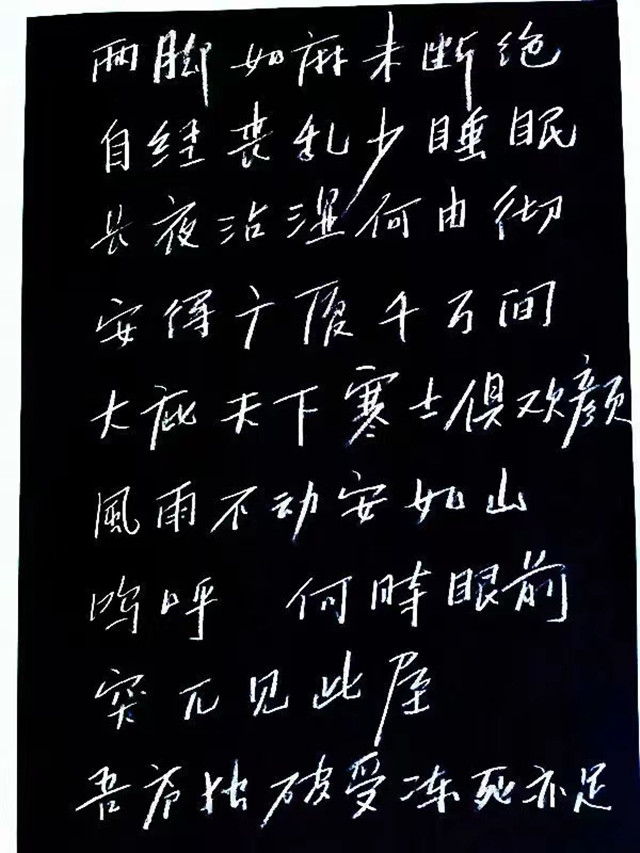 两脚如麻未断绝
自经丧乱少睡眠
长夜沾湿何由彻
安得广厦千万间
大庇天下寒士俱欢颜
風雨不动安如山
呜呼 何時眼前
突兀见此屋
吾庐独破受冻死亦足